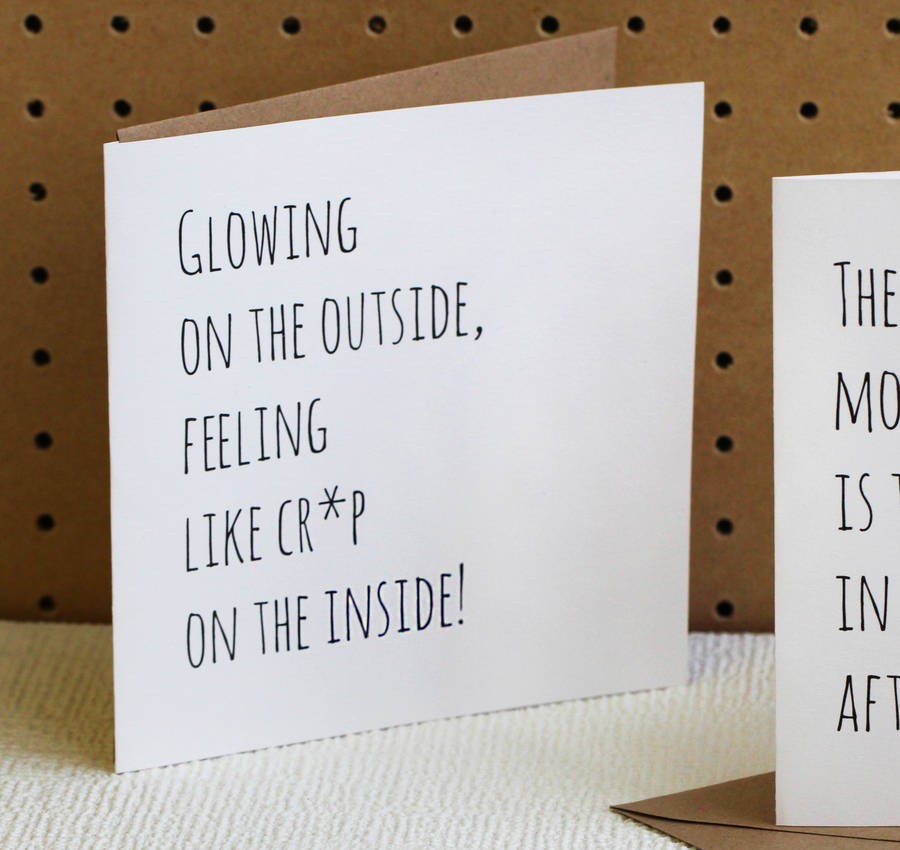 GLOWING
ON THE OUTSIDE,
FEELING
LIKE CR*P
ON THE INSIDE!
THE
MO
IS
IN
AFT